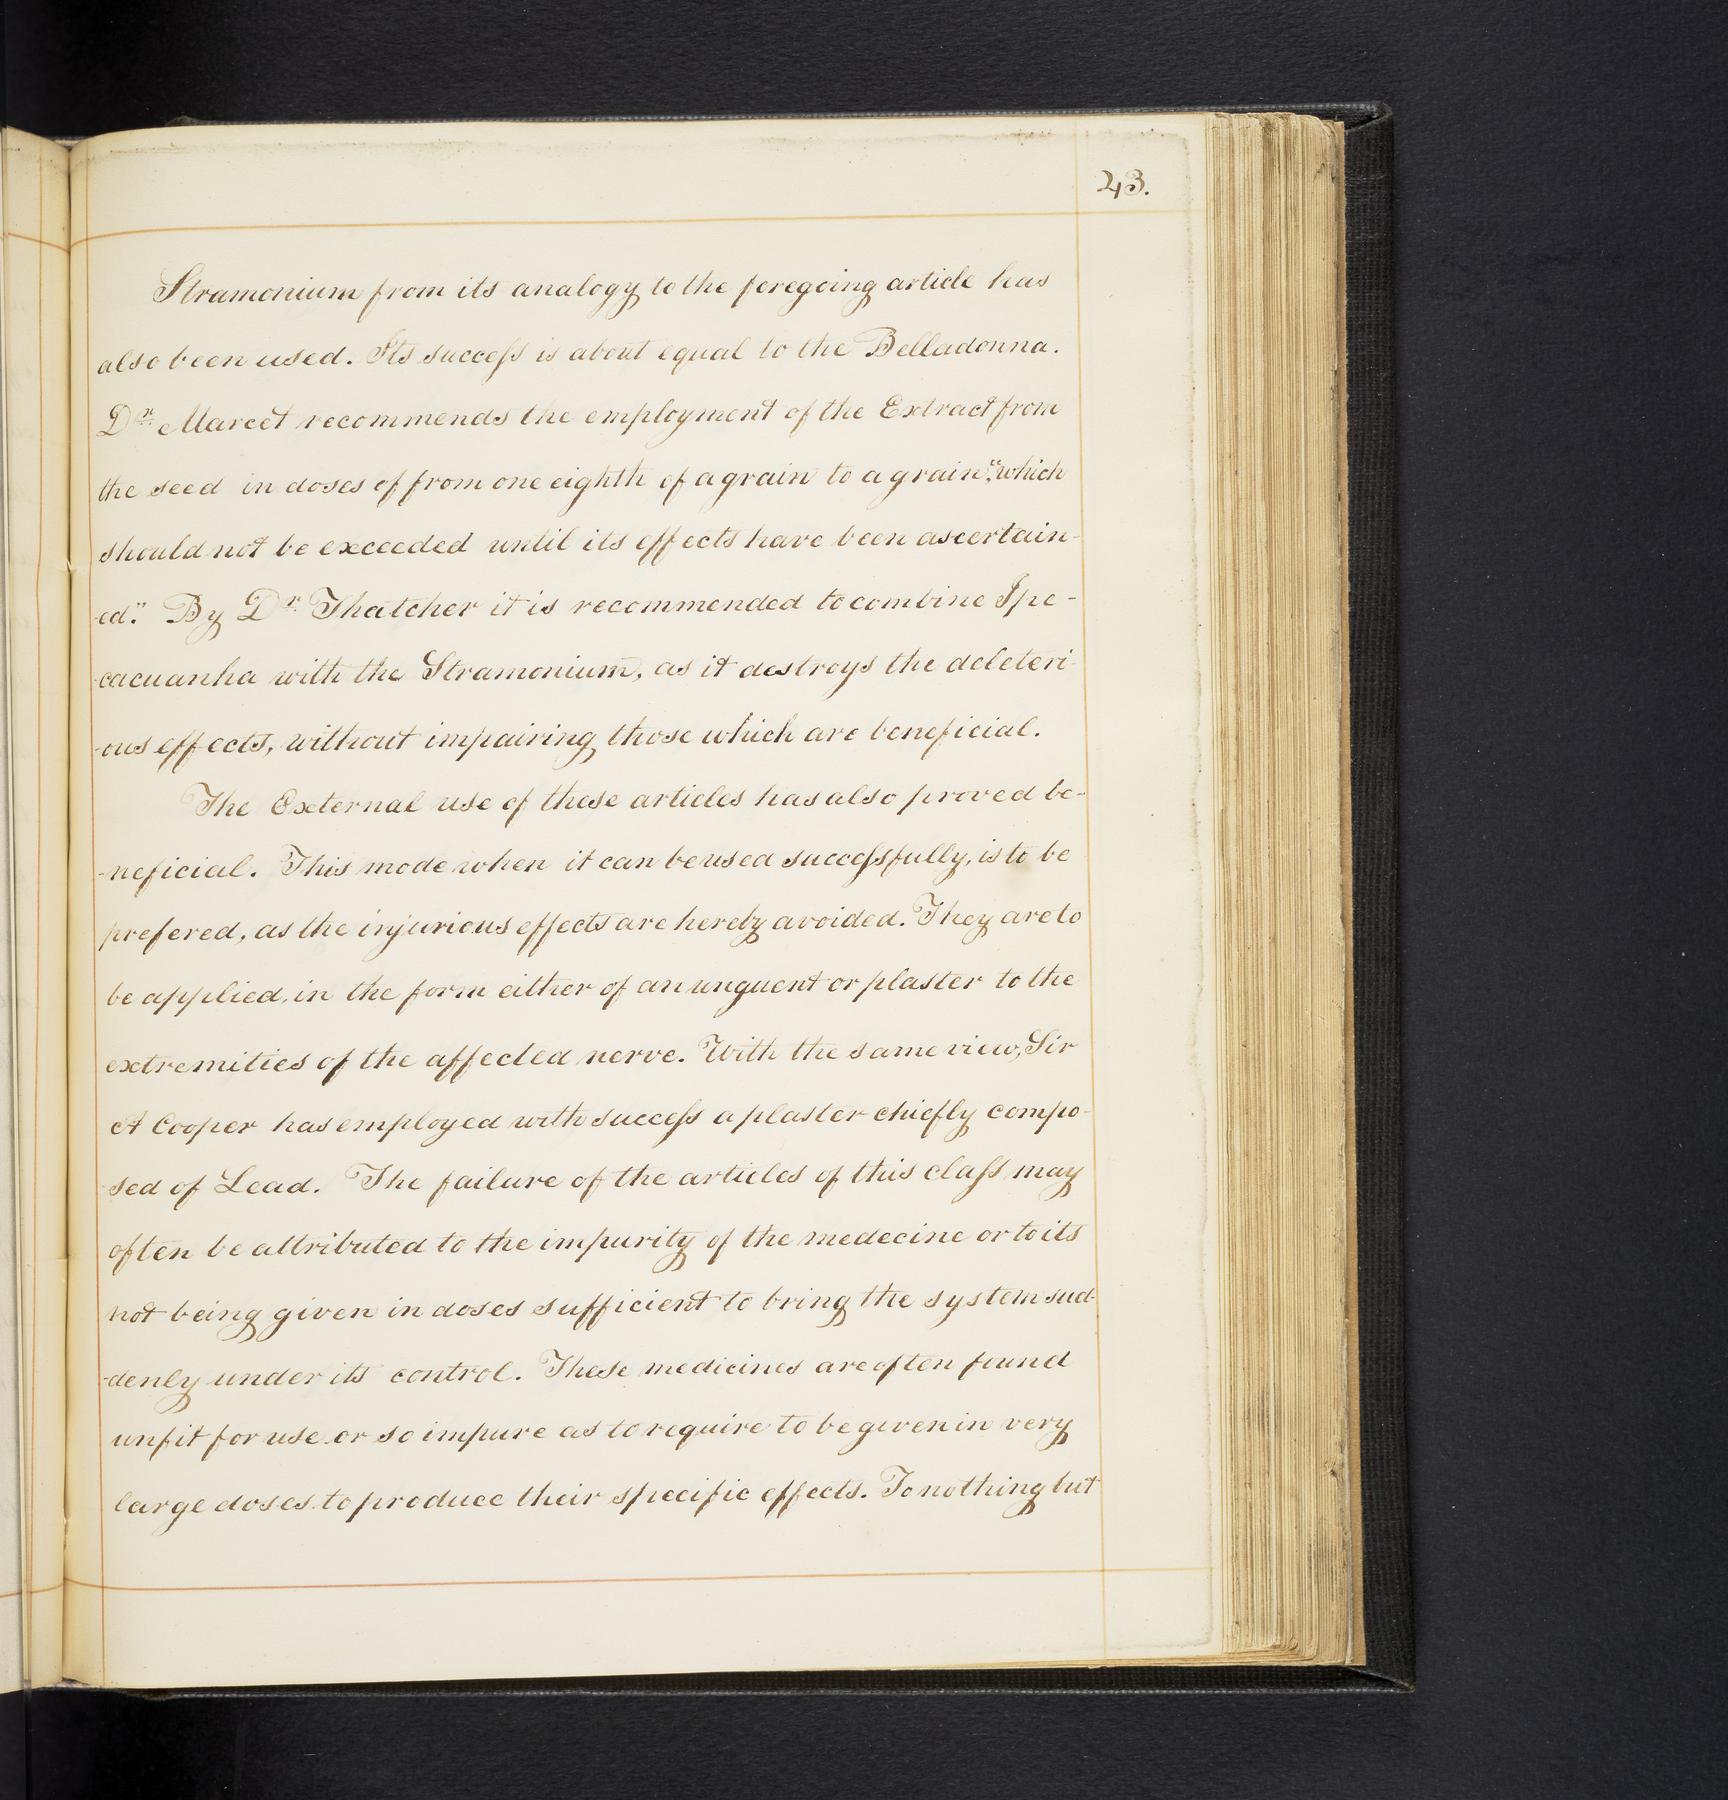 43.
Stramonium from its analogy to the foregoing article has
also been used. Its succeſs is about equal to the Belladonna.
Dr. Marcet recommends the employment of the Extract from
the seed in doses of from one eighth of a grain to a grain, "which
should not be exceeded until its effects have been ascertain-
-ed." By Dr. Thatcher it is recommended to combine Ipe-
-cacuanha with the Stramonium, as it destroys the deleteri-
-ous effects, without impairing those which are beneficial.
The External use of these articles has also proved be-
-neficial. This mode when it can be used succeſsfully, is to be
prefered, as the injurious effects are hereby avoided. They are to
be applied, in the form either of an unguent or plaster to the
extremities of the affected nerve. With the same view, Sir
A Cooper has employed with succeſs a plaster chiefly compo-
sed of Lead. The failure of the articles of this claſs may
often be attributed to the impurity of the medecine or to its
not being given in doses sufficient to bring the system sud-
-denly under its control. These medicines are often found
unfit for use or so impure as to require to be given in very
large doses to produce their specific effects. To nothing but